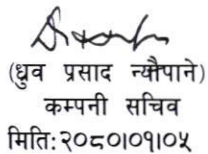 (ध्रुव प्रसाद न्यौपाने)
कम्पनी सचिव
मिति:२०८०।०१।०५